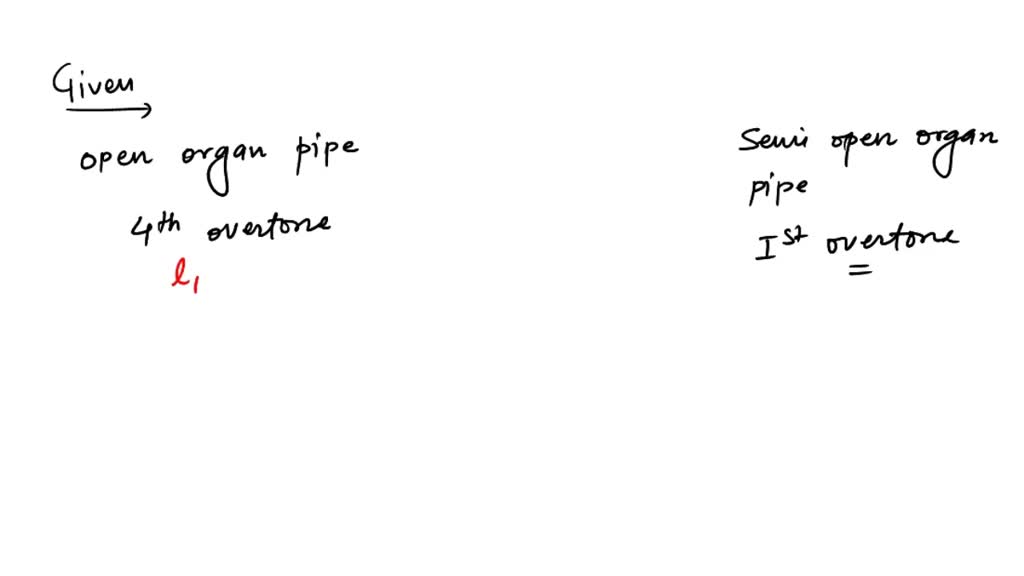 Given
open organ pipe
4th overtone
l1
Semi open organ
pipe
Ist overtone